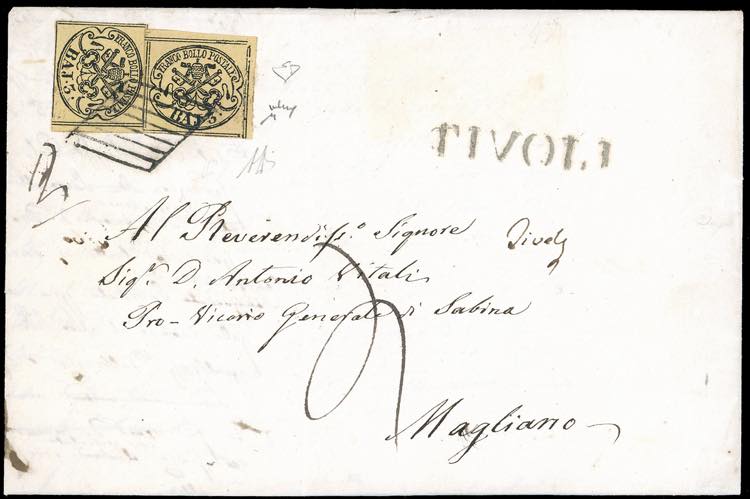 FRANCO BOLLO POSTALE
BAJ. 5
FRANCO BOLLO POSTALE
BAJ
TIVOLI
Al Reverendiss.o Signore
Sig.r D. Antonio Vitali
Pro-Vicario Generale di Sabina
Magliano